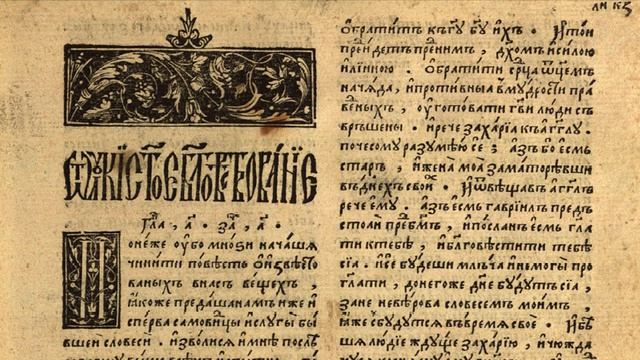 Гла, а҃. за҃, а҃.
понеже оубо мнози начаша
чинити повѣсть ѡ извѣсто
ваныхъ внасъ вещехъ,
ꙗкоже предашанамъ иже и
сперва самовидци ислугы бы
вшеи словеси. изволися имнѣ послѣ
ѡбратитъ къ гу҃ бу҃ ихъ. Итои
прѣидетъ прѣнимъ, дх҃омъ исилою
илиною. ѡбратити срд҃ца ѿц҃емъ
начада, ипротивныа вмудрости пра
вѣныхъ, оуготовати гв҃и люди съ
врьшены. ирече захарїа къ агг҃лу.
почесому разумѣю се; азъ бо есмь
старъ, ижена моа заматорѣвши
въ днехъ своиⷯ. Иѿвѣщавъ агг҃лъ
рече ему. азъ есмь гаврїилъ предъ
стоаи прѣбг҃мъ, ипосланъ есмь гла
ти ктебѣ, иблг҃овѣстити тебѣ
сїа. исе будеши млъча инемогы про
гл҃ати, донегоже дн҃е будутъ сїа,
зане невѣрова словесемъ моимъ,
ꙗже сбудутся въ время свое. Ибѣ
шя людїе ждуще захарїю, ичюжда